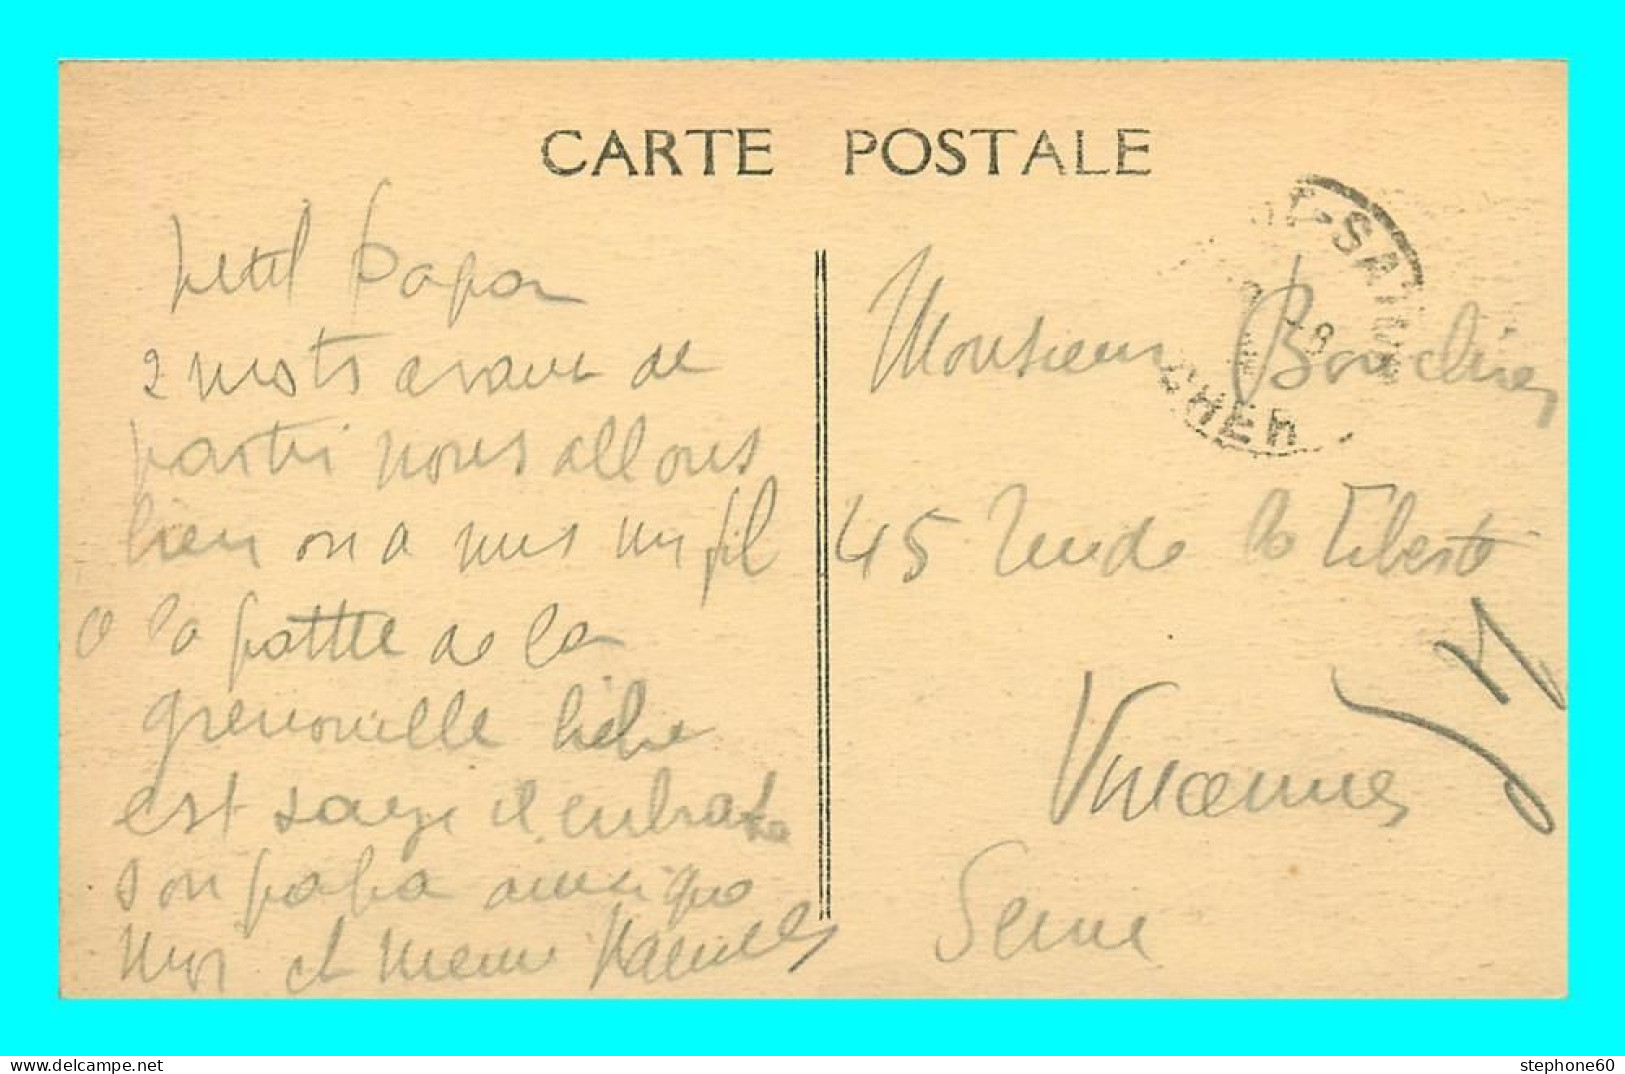 CARTE POSTALE
Petit Papa
2 mots avant de
partir nous allons
bien on a mis un fil
a la pattte de la
grenouille
est sage il embrasse
son papa ainsi que
moi et meme
Monsieur
45 Rue de la Liberté
Vincennes
Seine
ST-SATUR
CHER
8
stephone60